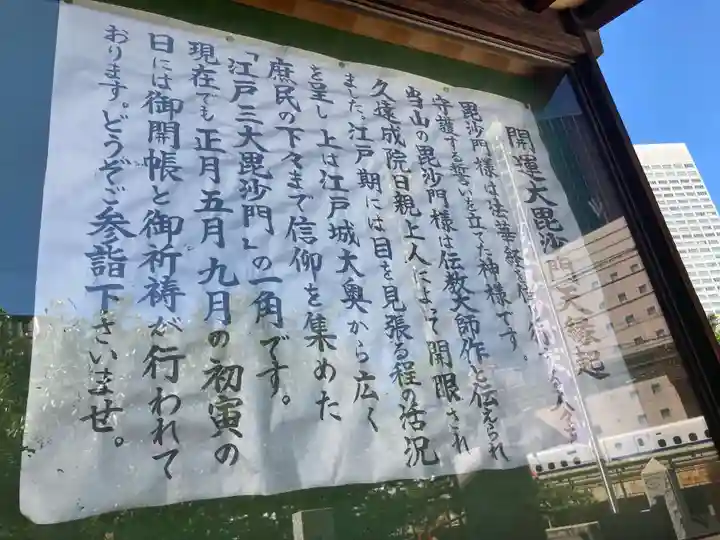 開運大毘沙門天縁起
毘沙門様は法華経を信 行 人々
守護する誓いを立てた神様です。
当山の毘沙門様は伝教大師作と伝えられ
久遠成院日親上人によって開眼され
ました。江戸期には目を見張る程の活況
を呈し上は江戸城大奥から広く
庶民の下々まで信仰を集めた
「江戸三大毘沙門」の一角です。
現在でも正月五月九月の初寅の
日には御開帳と御祈祷が行われて
おります。どうぞご参詣下さいませ。